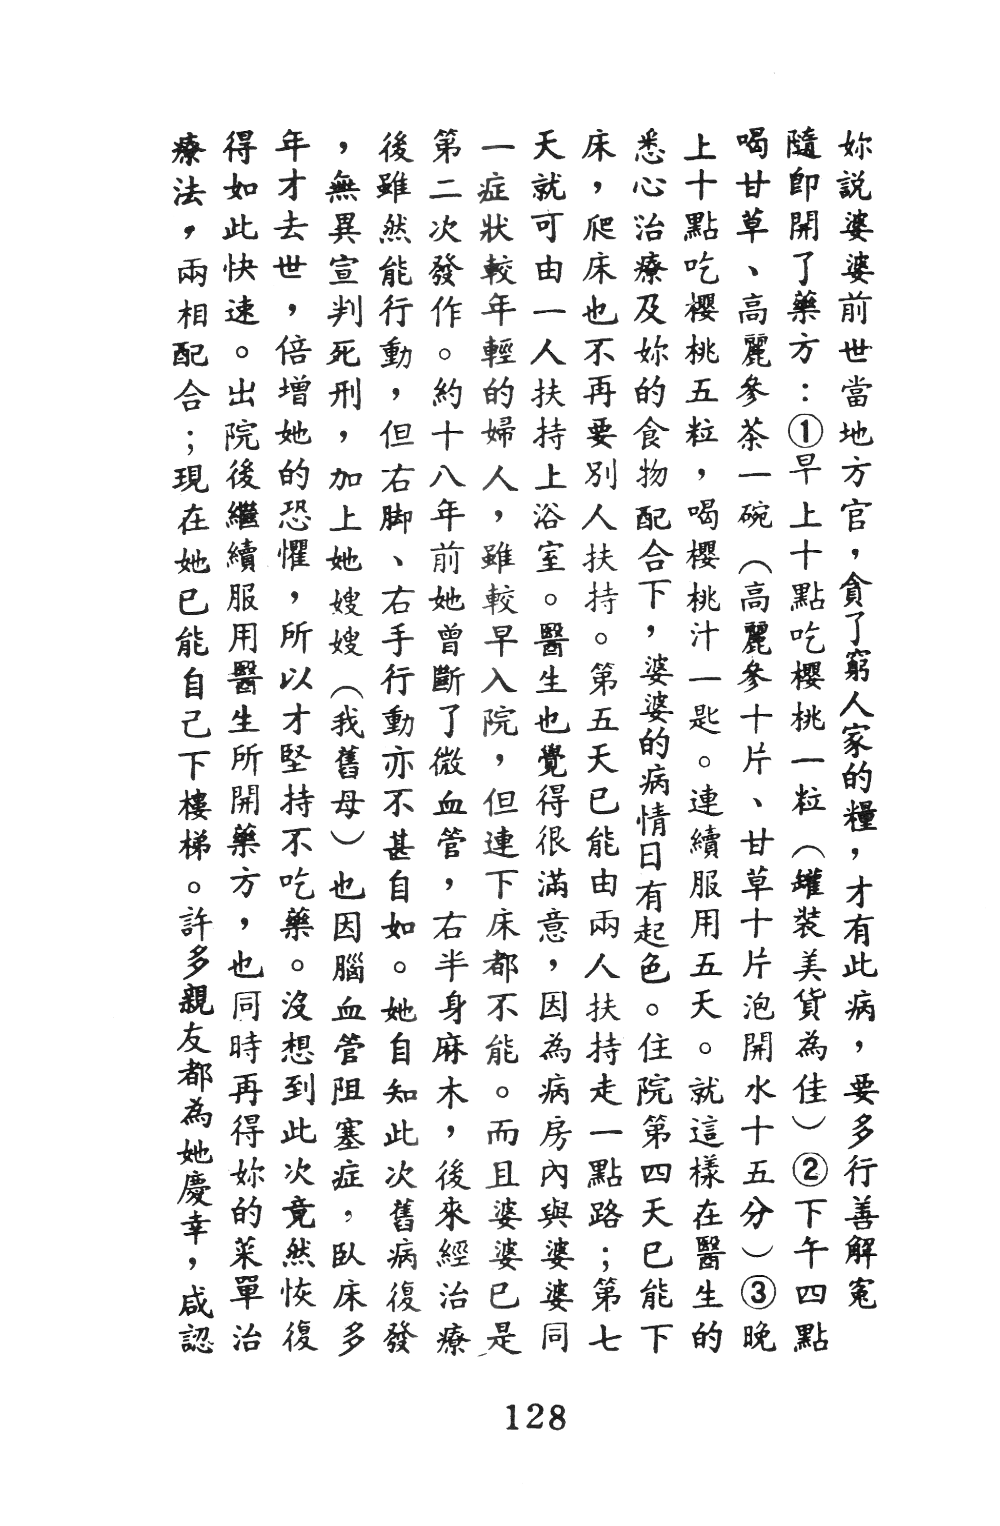 妳説婆婆前世當地方官，貪了窮人家的糧，才有此病，要多行善解冤
隨即開了藥方：①早上十點吃櫻桃一粒（罐裝美貨為佳）②下午四點
喝甘草、高麗參茶一碗（高麗參十片、甘草十片泡開水十五分）③晚
上十點吃櫻桃五粒，喝櫻桃汁一匙。連續服用五天。就這樣在醫生的
悉心治療及妳的食物配合下，婆婆的病情日有起色。住院第四天已能下
床，爬床也不再要別人扶持。第五天已能由兩人扶持走一點路；第七
天就可由一人扶持上浴室。醫生也覺得很滿意，因為病房內與婆婆同
一症狀較年輕的婦人，雖較早入院，但連下床都不能。而且婆婆已是
第二次發作。約十八年前她曾斷了微血管，右半身麻木，後來經治療
後雖然能行動，但右脚、右手行動亦不甚自如。她自知此次舊病復發
，無異宣判死刑，加上她嫂嫂（我舊母）也因腦血管阻塞症，臥床多
年才去世，倍增她的恐懼，所以才堅持不吃藥。沒想到此次竟然恢復
得如此快速。出院後繼續服用醫生所開藥方，也同時再得妳的菜單治
療法，兩相配合；現在她已能自己下樓梯。許多親友都為她慶幸，咸認
128